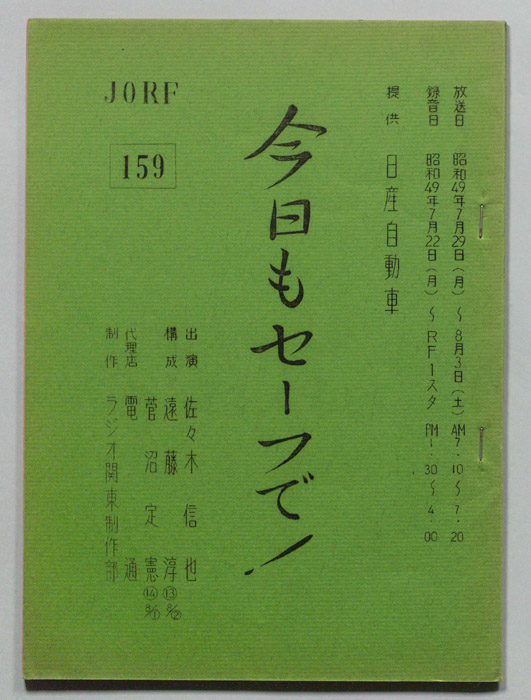 放送日 昭和49年7月29日(月)~8月3日(土) AM7.10~7.20
録音日 昭和49年7月22日(月)~RF1スタ PM1.30~4.00
提供 日産自動車
今日もセーフで!
JORF
159
出演 佐々木信也
構成 遠藤淳⑬8/2
菅沼定憲⑭8/1
代理店 電通
制作 ラジオ関東制作部